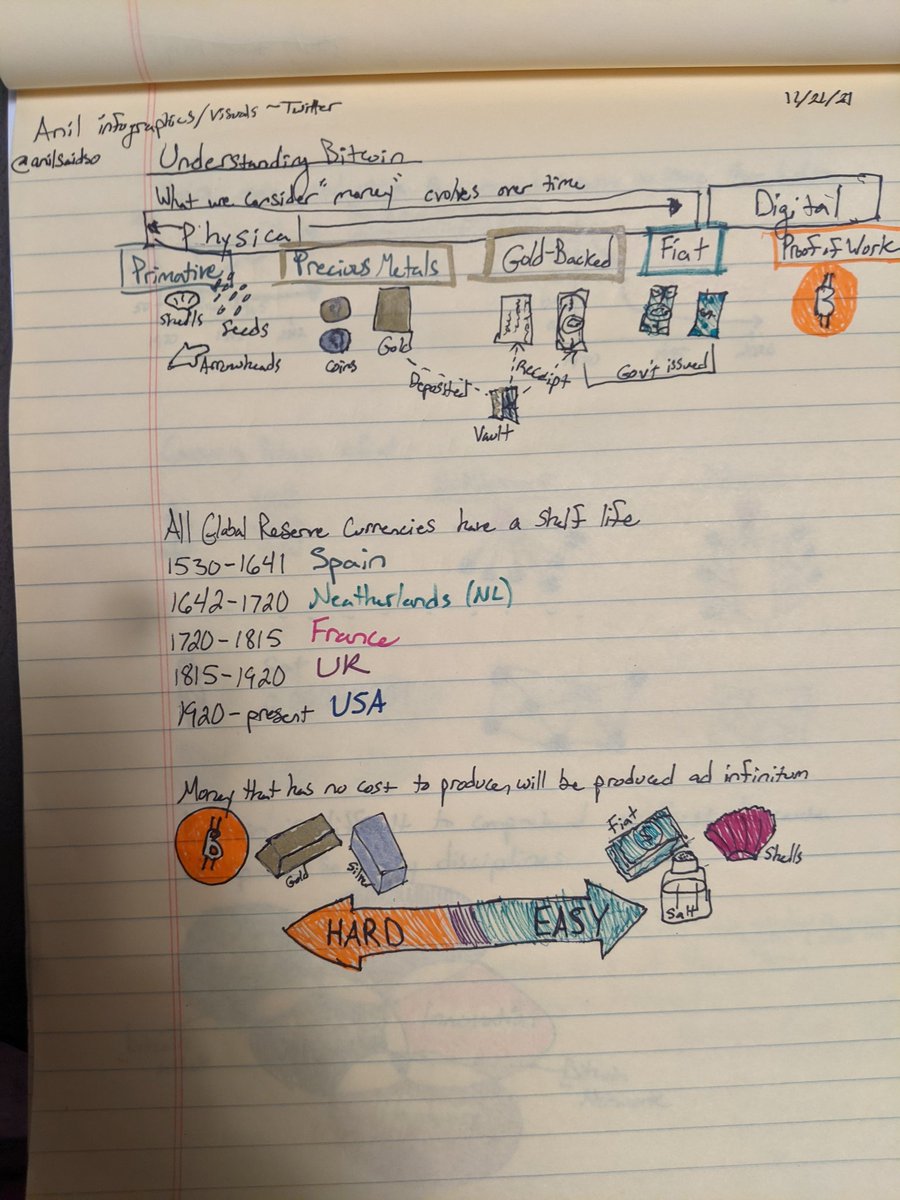 12/21/21
Anil infographics/visuals ~ Twitter
@anilsaidso
Understanding Bitcoin
What we consider "money" evolves over time
Physical
Digital
Primative
Precious Metals
Gold-Backed
Fiat
Proof of Work
Shells
Seeds
Arrowheads
coins
Gold
Deposited
Receipt
Vault
Gov't issued
B
$
All Global Reserve Currencies have a shelf life
1530-1641 Spain
1642-1720 Neatherlands (NL)
1720-1815 France
1815-1920 UK
1920-present USA
Money that has no cost to produce, will be produced ad infinitum
B
Gold
Silver
Fiat
$
Shells
Salt
HARD
EASY